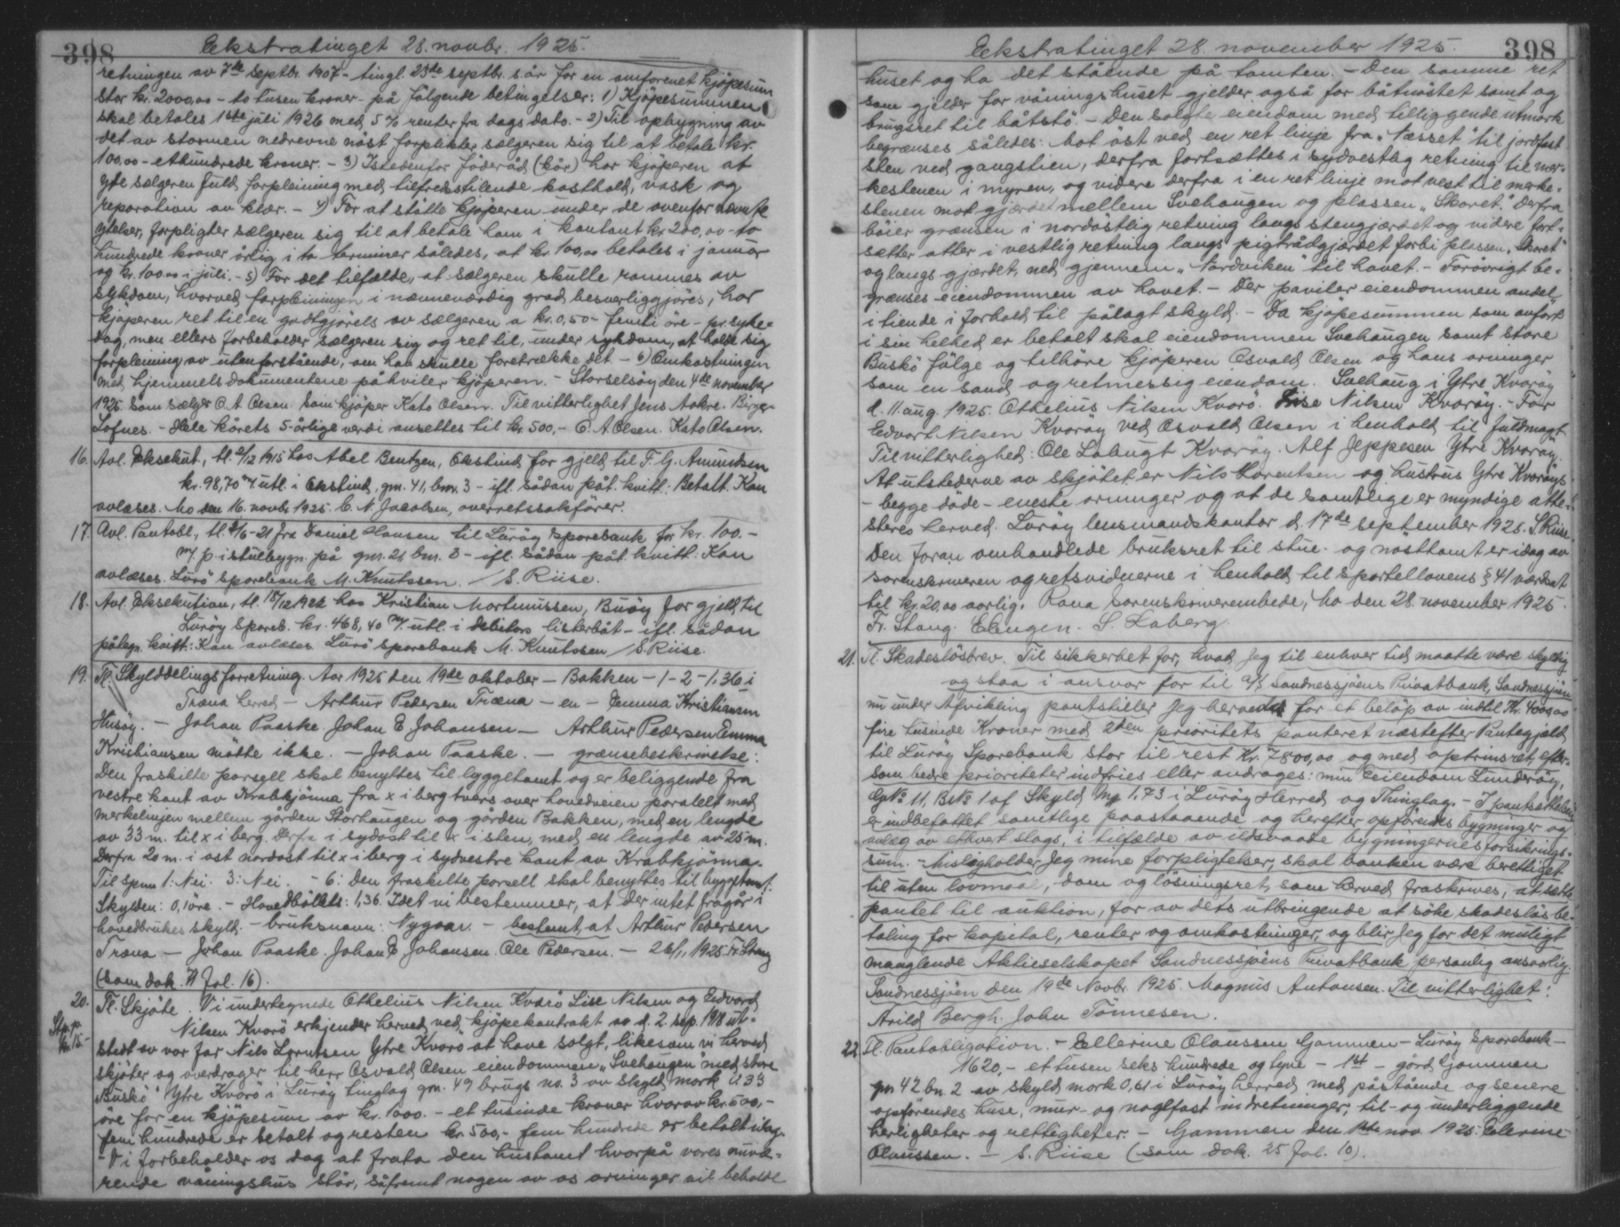 398
Ekstratinget 28. novbr. 1925.
retningen av 7de septbr. 1907 - tingl. 23de septbr. s.år for en omforenet kjøpesum
stor kr. 2000,00 - to tusen kroner - på følgende betingelser: 1) Kjøpesummen
skal betales 1ste juli 1926 med 5 % renter fra dags dato. - 2) Til opbygning av
det av stormen nedrevne nöst forplikter sælgeren sig til at betale kr.
100,00 - ethundrede kroner. - 3) Istedenfor föderåd (kår) har kjöperen at
yte sælgeren fuld forpleining med tilfredsstillende kosthold, vask og
reparation av klær. - 4) For at stille kjöperen under de ovenfor nævnte
ytelser, forpligter sælgeren sig til at betale ham i kontant kr. 200,00 to
hundrede kroner årlig i to terminer således, at kr. 100,00 betales i januar
og kr. 100.00 i juli. - 5) For det tilfælde, at sælgeren skulle rammes av
sykdom, hvorved forpleiningen i nævneværdig grad besværliggjöres, har
kjöperen ret til en godtgjörels av sælgeren a kr. 0,50 - femti öre - pr. syke-
dag, men ellers forbeholder sælgeren sig og ret til, under sykdom, at holde sig
forpleining av utenforstående, om han skulle foretrække det - 6) Omkostningen
med hjemmelsdokumentene påhviler kjöperen. - Storselsöy den 4de november
1925. Som sælger C. A. Olsen. Som kjöper Kato Olsen. Til vitterlighet Jens Aakre. Birger
Lofnes. - Hele kårets 5-årlige verdi ansettes til kr. 500,- C. A. Olsen. Kato Olsen.
16. Avl. Eksekut., tl. 2/12 1915 hos Abel Bentzen, Okstind for gjeld til F. G. Amundsen
kr. 98,70 % utl. i Okstind, gnr. 41, bnr. 3 - ifl. sådan påt. kvitt: Betalt. Kan
avlæses. Mo den 16. novbr. 1925. C. N. Jacobsen, overretssakförer.
17. Avl. Pantobl., tl. 2/6-21 fra Daniel Hansen til Luröy Sparebank for kr. 100.-
m/ p. i stulbygn. på gnr. 21 bnr. 3 - ifl. sådan påt. kvitt: Kan
avlæses. Lurö Sparebank M. Knutssen / S. Riise.
18. Avl. Eksekution, tl. 15/12 1922 hos Kristian Mortinussen, Buöy for gjeld til
Luröy spareb. kr. 468,40 % utl. i debitors listerbåt - ifl. sådan
påtegn. kvitt: Kan avlæses Lurö Sparebank M. Knutssen / S. Riise.
19. Tl. Skylddelingsforretning. Aar 1925 den 19de oktober - Bakken - 1 - 2 - 1,36 i
Træna herred - Arthur Pedersen Træna - en - Emma Kristiansen
Husöy. - Johan Paaske Johan E Johansen - Arthur Pedersen Emma
Kristiansen møtte ikke. - Johan Paaske. - grænsebeskrivelse:
Den fraskilte parsell skal benyttes til byggetomt og er beliggende fra
vestre kant av Krabkjönna fra x i berg tvers over hovedveien paralelt med
merkelinjen mellem gården Storhaugen og gården Bakken, med en lengde
av 33 m. til x i berg. Derfra i sydost til x i sten, med en lengde av 25 m.
Derfra 20 m. i ost nordost til x i berg i sydvestre kant av Krabkjönna.
Til spm 1: Nei. 3: Nei. - 6: Den fraskilte parsell skal benyttes til byggetomt.
Skylden: 0,1 öre. - Hovedbölets: 1,36. Idet vi bestemmer, at der intet frågår i
hovedbrukets skyld - bruksnavn: Nygaar. - bestemt, at Arthur Pedersen
Træna - Johan Paaske. Johan E Johansen. Ole Pedersen. - 26/11 1925 Fr. Stang
(som dok. 7 fol. 16).
20. Tl. Skjöte. Vi undertegnede Othelius Nilsen Kvarö Lise Nilsen og Edvard
Stp. pr.
kr. 15.-
Nilsen Kvarö erkjender herved, ved kjöpekontrakt av d. 2. sep. 1918 ut-
stedt av vor far Nils Lorntsen Ytre Kvarö at have solgt, likesom vi herved
skjöter og overdrager til herr Osvald Olsen eiendommen "Svehaugen" med store
Buskö" Ytre Kvarö i Luröy tinglag gnr. 49 brugs no. 3 av skyld mark 0.33
öre for en kjöpesum av kr. 1000.- et tusinde kroner hvorav kr. 500,-
fem hundrede er betalt og resten kr. 500,- fem hundrede er betalt idag.
- Vi forbeholder os dog at frata den hustomt hvorpå vores nuvæ-
rende våningshus står, såfremt nogen av os arvinger vil beholde
Ekstratinget 28. november 1925.
398
huset og ha det stående på tomten. - Den samme ret
som gjelder for våningshuset gjelder også for båtnöstet samt og
brugsret til båtstö. - Den solgte eiendom med tilliggende utmark
begrænses således: Mot öst ved en ret linje fra "Næsset" til jordfast
sten ved gangstien, derfra fortsættes i sydvestlig retning til mer-
kestenen i myren, og videre derfra i en ret linje mot vest til merke-
stenen mot gjærdet mellem Svehaugen og plassen "Skoret", derfra
böier grænsen i nordöstlig retning langs stengjærdet og videre fort-
sætter atter i vestlig retning langs pigtrådgjærdet forbi plassen "Skoret"
og langs gjærdet ned gjennem "Nordviken" til havet. - Forövrigt be-
grænses eiendommen av havet. - Der påviler eiendommen andel
i tiende i forhold til pålagt skyld. - Da kjöpesummen som anfört
i sin helhed er betalt skal eiendommen Svehaugen samt store
Buskö fölge og tilhöre kjöperen Osvald Olsen og hans arvinger
som en sand og retmessig eiendom. Svehaug i Ytre Kvaröy
d. 11 aug. 1925. Othelius Nilsen Kvarö. Lise Nilsen Kvaröy. - For
Edvart Nilsen Kvaröy ved Osvald Olsen i henhold til fuldmagt
Til vitterlighed: Ole Labugt Kvaröy. Alf Jeppesen Ytre Kvaröy.
At utstederne av skjötet er Nils Lorentsen og hustrus Ytre Kvaröys
- begge döde - eneste arvinger og at de samtlige er myndige atte-
steres herved. Luröy lensmandskontor d. 17de september 1925. S. Riise.
Den foran omhandlede bruksret til stue- og nösttomt er idag av
sorenskriveren og retsvidnerne i henhold til sportellovens § 41 værdsat
til kr. 20,00 aarlig. Rana sorenskriverembede, Mo den 28. november 1925.
Fr. Stang. Elengen. S. Laberg
21. Tl. Skadeslösbrev. Til sikkerhet for, hvad jeg til enhver tid maatte være skyldig
og staa i ansvar for til A/S Sandnessjøens Privatbank, Sandnessjøen
nu under Afvikling pantstiller jeg herved for et beløp av indtil Kr. 4000,00
fire tusinde Kroner med 2den prioritets panteret næstefter Pantegjeld
til Luröy Sparebank stor til rest Kr. 7800,00 og med optrinsret efter-
som bedre prioriteter indfries eller avdrages: min Eiendom Lunderöy,
Gno 11, Bno 1 af Skyld Mk 1.73 i Luröy Herred og Thinglag. - I pantsettelsen
er indbefattet samtlige paastaaende og herefter opförendes bygninger og
anlæg av ethvert slags, i tilfælde av ildsvaade bygningernes forsikrings-
sum. - Misligholder jeg mine forpligtelser, skal banken være berettiget
til uten lovmaal, dom og lösningsret, som herved fraskrives, at sætte
pantet til auktion, for av dets utbringende at söke skadeslös be-
taling for kapital, renter og omkostninger, og blir jeg for det muligt
manglende Aktieselskapet Sandnessjøens Privatbank personlig ansvarlig.
Sandnessjøen den 19de Novbr. 1925. Magnus Antonsen. Til vitterlighet:
Arild Bergh. John Tönnesen.
22. Tl. Pantobligation. - Ellerine Olaussen Gammen - Luröy Sparebank -
1620,- et tusen seks hundrede og tyve - 1st - gård Gammen
gnr 42 bn. 2 av skyld mark 0,61 i Luröy herred med påstående og senere
opförendes huse, mur- og naglfast indretninger, til- og underliggende
herligheter og rettigheter. - Gammen den 1ste nov. 1925. Elerine
Olaussen. - S. Riise (som dok. 25 fol. 10).